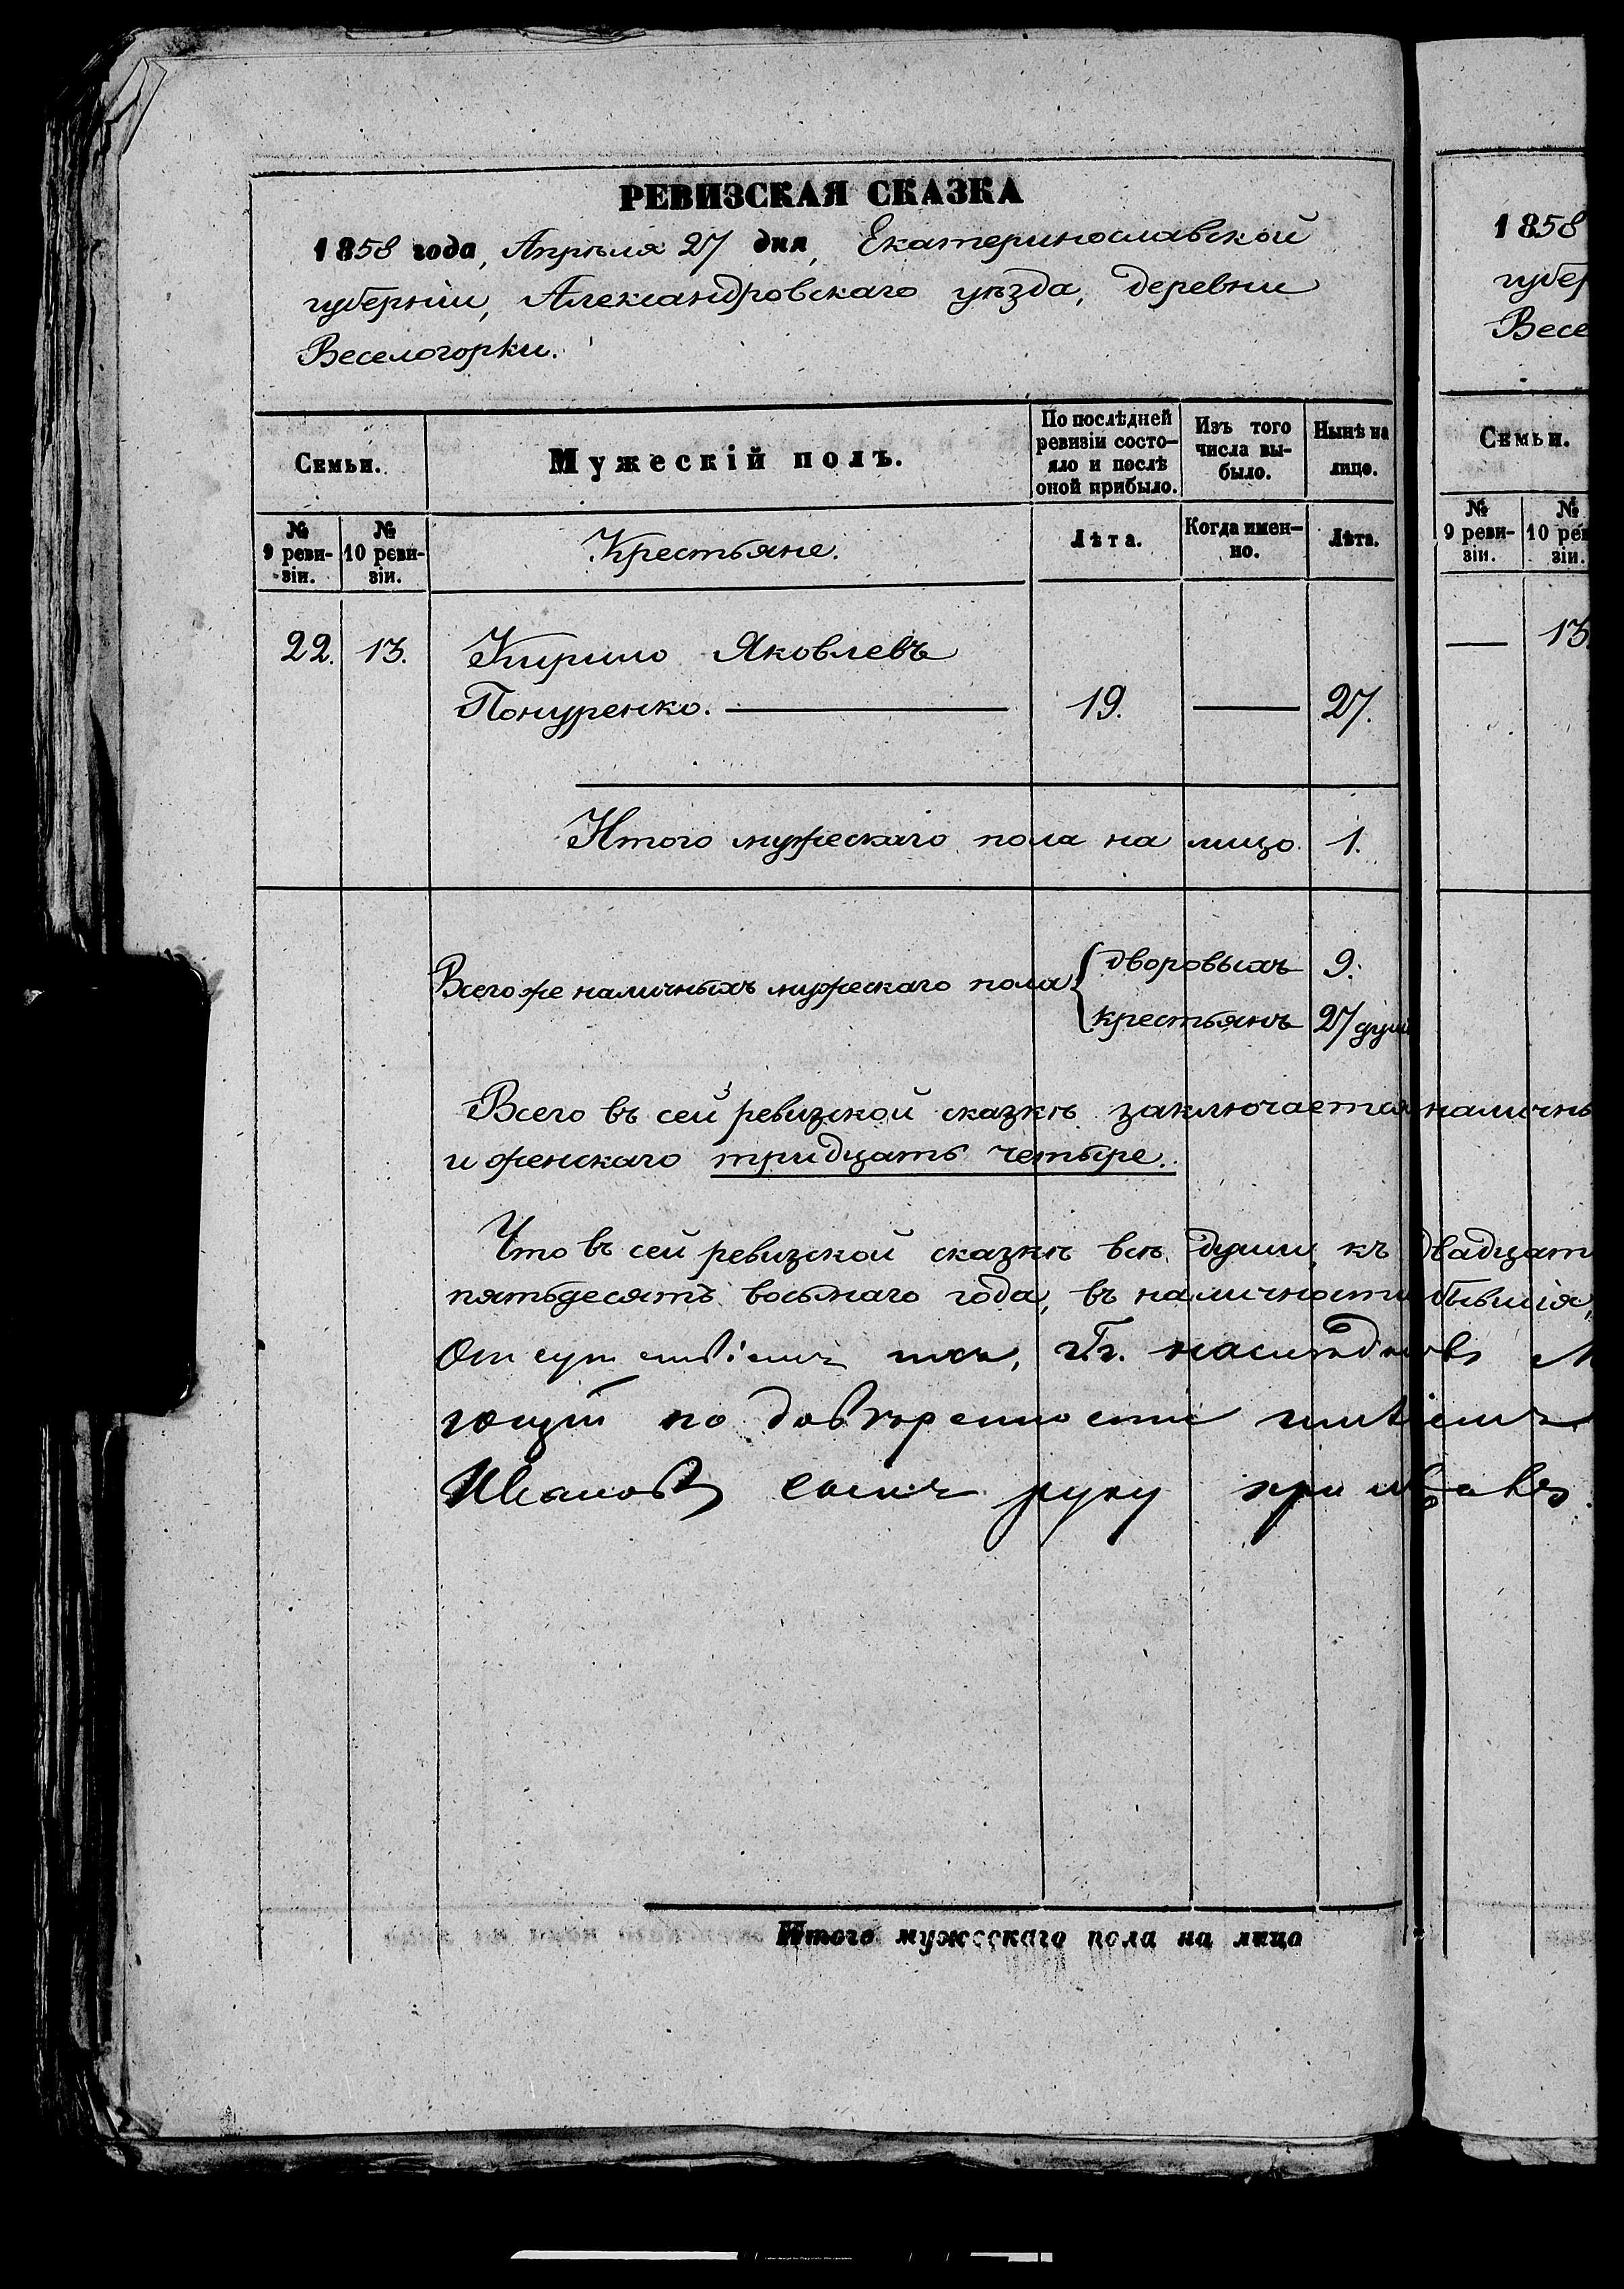 РЕВИЗСКАЯ СКАЗКА
1858 года, Апрѣля 27 дня, Екатеринославской
губерніи, Александровскаго уѣзда, деревни
Веселогорки.
Семьи.
Мужескій полъ.
По послѣдней ревизіи состо-
яло и послѣ оной прибыло.
Изъ того числа вы-
было.
Нынѣ на лицо.
№ 9 реви-
зіи.
№ 10 реви-
зіи.
Крестьяне.
Лѣта.
Когда имен-
но.
Лѣта.
22. 13. Кирило Яковлевъ
Понуренко. 19. — 27.
Итого мужескаго пола на лицо 1.
Всего же наличныхъ мужескаго пола
дворовыхъ 9.
крестьянъ 27 душ
Всего въ сей ревизской сказкѣ заключается наличны
и женскаго тридцать четыре.
Что въ сей ревизской сказкѣ всѣ души, къ двадцат
пятьдесятъ восьмаго года, въ наличности бывшія,
по довѣренности имѣніемъ
Ивановъ сынъ руку приложавъ.
Итого мужескаго пола на лицо
1858
губер
Весе
Семьи.
№ 9 реви-
зіи.
№ 10 рев
зіи.
— 13